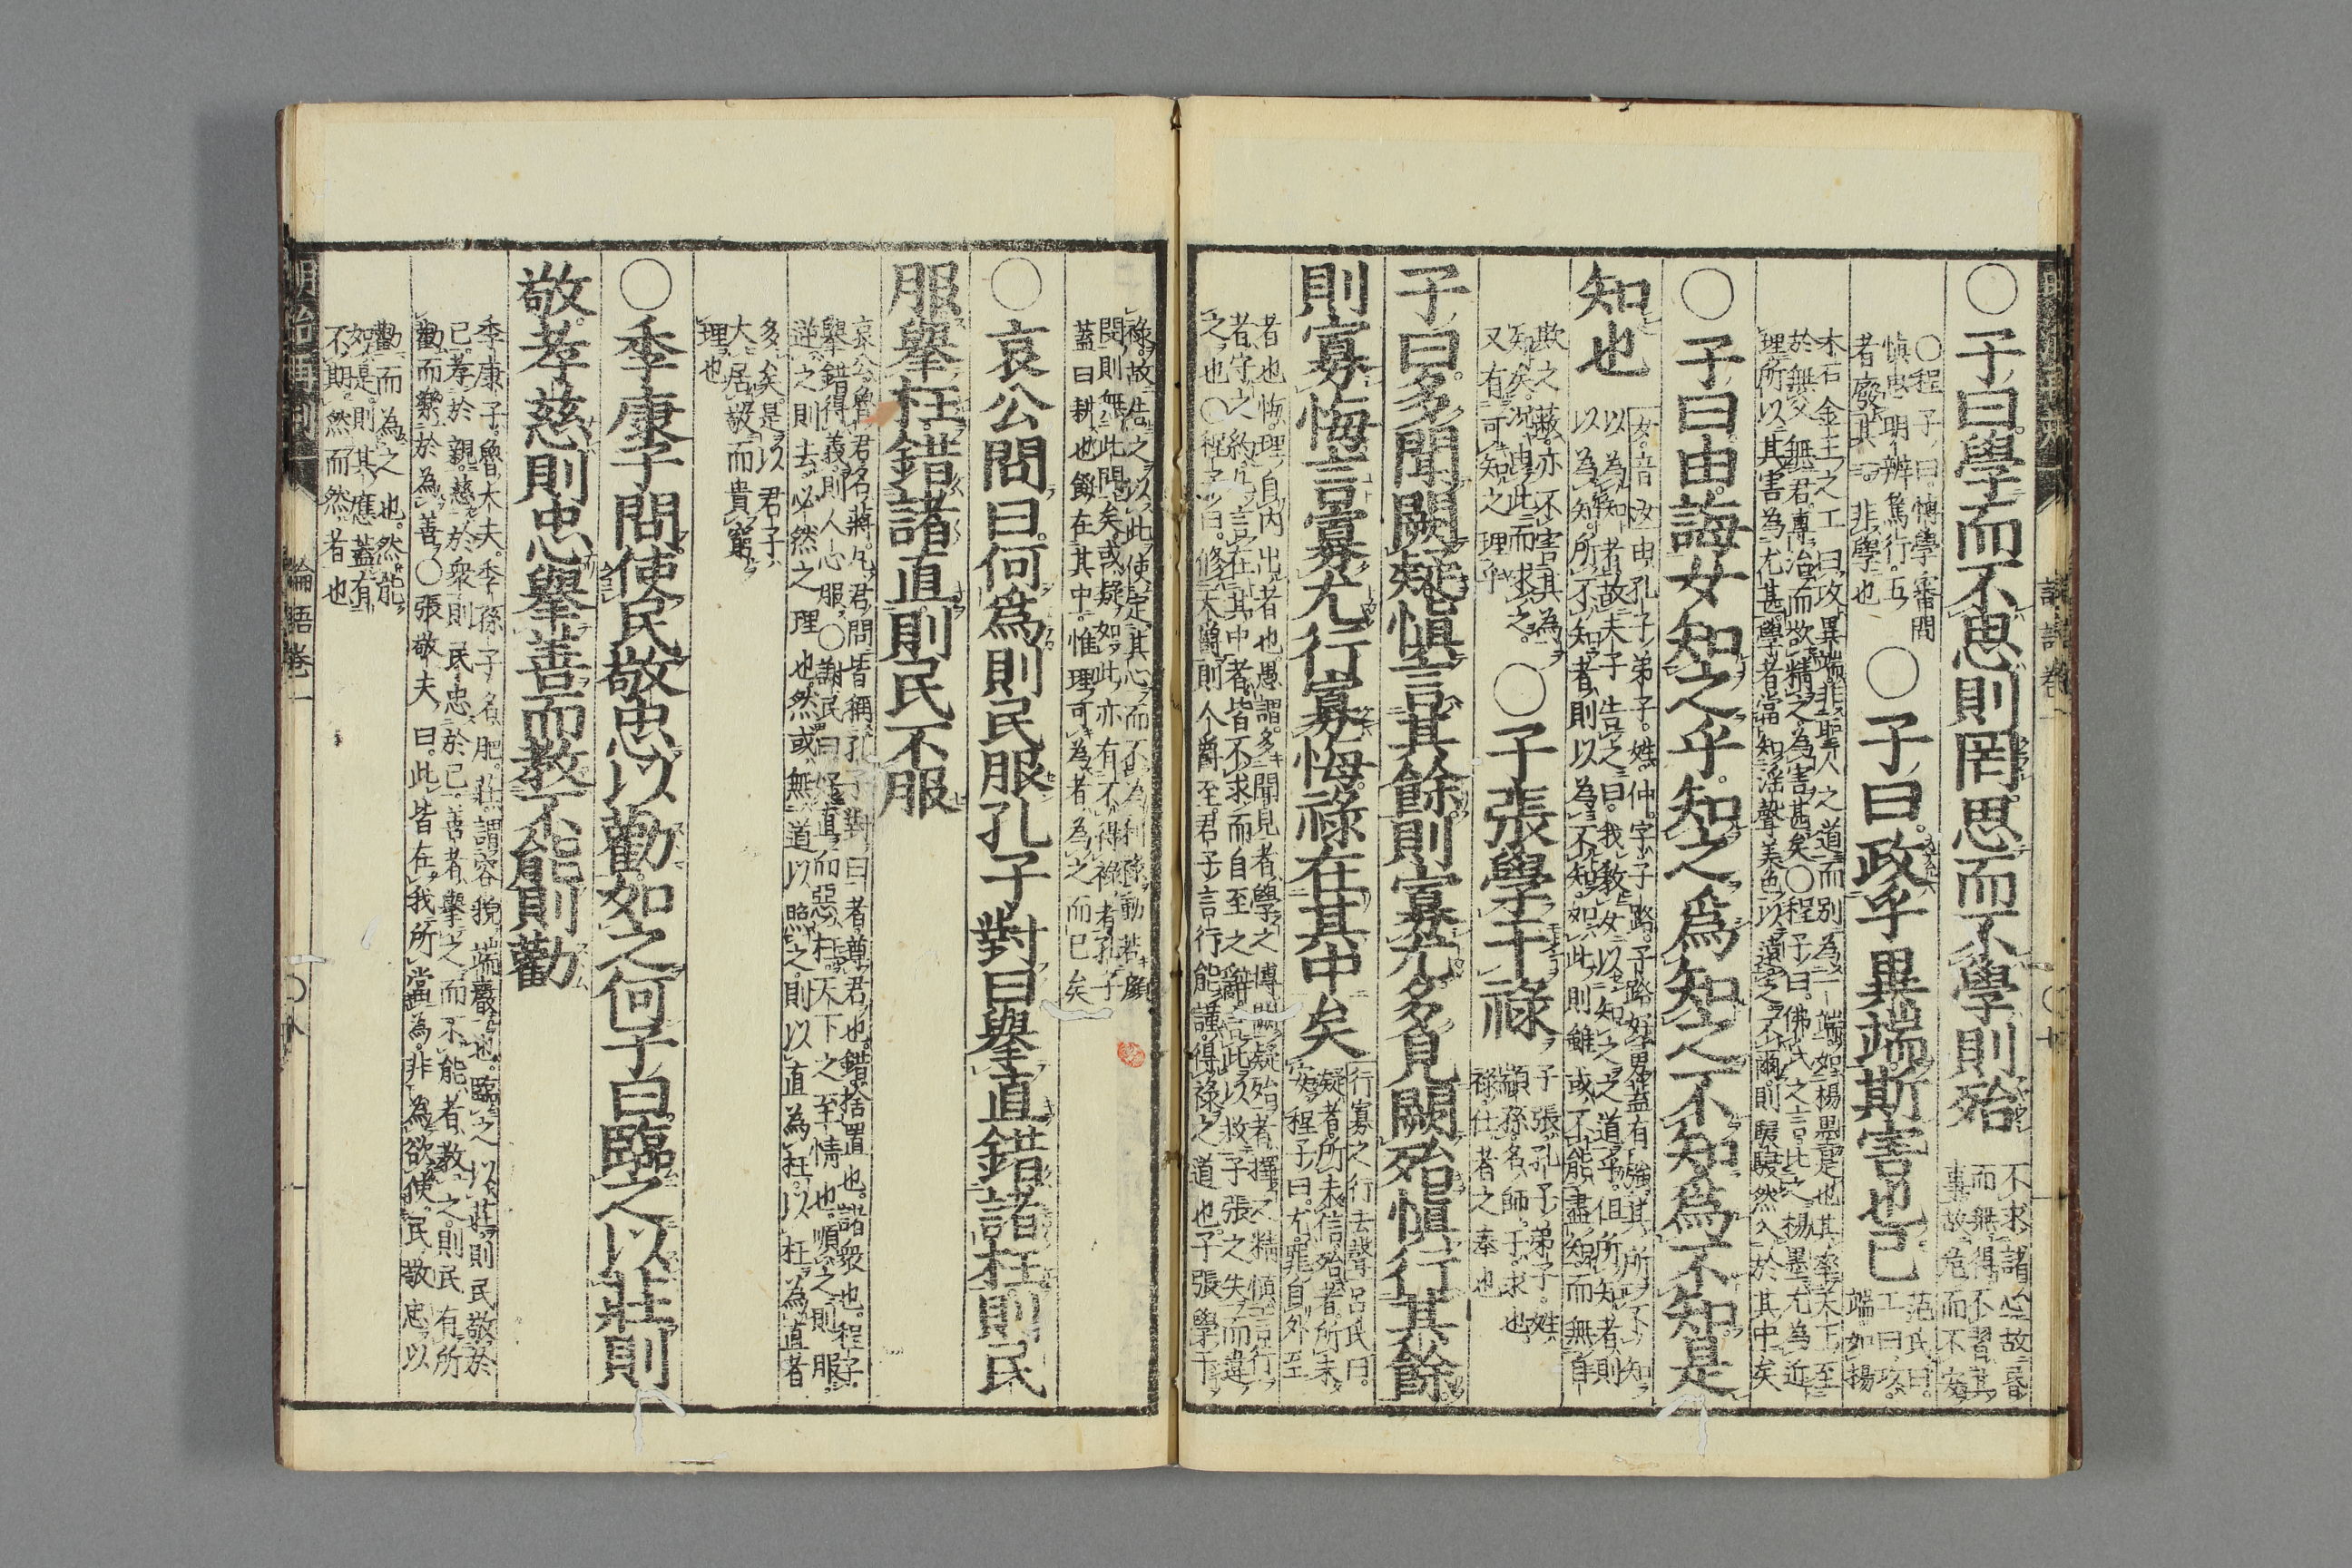 ○子曰學而不思則罔思而不學則殆
不求諸心故昏
而無得不習其
事故危而不安
○程子曰博學審問
愼思明辨篤行五
者廢其一非學也
○子曰攻乎異端斯害也已
范氏曰
工曰攻
端如揚
木石金玉之工曰攻異端非聖人之道而別為一端如楊墨是也其率天下至
於無父無君專治而欲精之為害甚矣○程子曰佛氏之言比之楊墨尤為近
理所以其害為尤甚學者當如淫聲美色以遠之不爾則駸駸然入於其中矣
○子曰由誨女知之乎知之爲知之不知爲不知是
知也
女音汝由孔子弟子姓仲字子路子路好勇蓋有強其所不知
以為知者故夫子告之曰我教女以知之之道乎但所知者則
以為知所不知者則以為不知如此則雖或不能盡知而無自
欺之蔽亦不害其為
知矣況由此而求之
又有可知之理乎
○子張學干祿
子張孔子弟子姓
顓孫名師干求也
祿仕者之奉也
子曰多聞闕疑愼言其餘則寡尤多見闕殆愼行其餘
則寡悔言寡尤行寡悔祿在其中矣
行寡之行去聲呂氏曰
疑者所未信殆者所未
安程子曰尤罪自外至
者也悔理自内出者也愚謂多聞見者學之博闕疑殆者擇之精愼言行
者守之約凡言在其中者皆不求而自至之辭言此以救子張之失而進
之也○程子曰修天爵則人爵至君子言行能謹得祿之道也子張學干
祿故告之以此使定其心而不為利祿動若顔
閔則無此問矣或疑如此亦有不得祿者孔子
蓋曰耕也餒在其中惟理可為者為之而已矣
○哀公問曰何爲則民服孔子對曰擧直錯諸枉則民
服擧枉錯諸直則民不服
哀公魯君名蔣凡君問皆稱孔子對曰者尊君也錯捨置也諸衆也程子
擧錯得義則人心服○謝氏曰好直而惡枉天下之至情也順之則服
逆之則去必然之理也然或無道以照之則以直為枉以枉為直者
多矣是以君子
大居敬而貴窮
理也
○季康子問使民敬忠以勸如之何子曰臨之以莊則
敬孝慈則忠擧善而教不能則勸
季康子魯大夫季孫子名肥莊謂容貌端嚴也臨之以莊則民敬於
已孝於親慈於衆則民忠於己善者擧之而不能者教之則民有所
勸而樂於為善○張敬夫曰此皆在我所當為非為欲使民敬忠以
勸而為之也然能
如是則其應蓋有
不期然而然者也
論語卷一